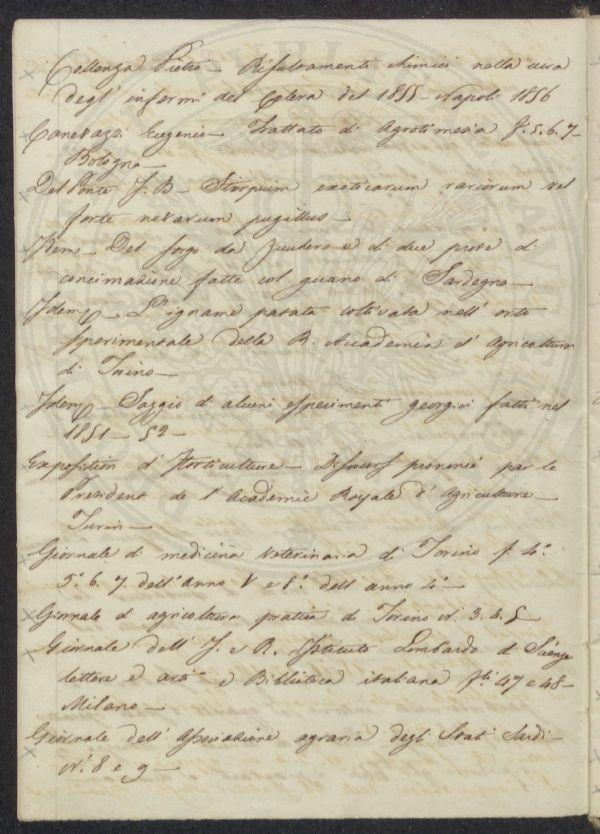 Cellenza Pietro – Risultamenti chimici nella cura
degl' infermi del Colera del 1855 – Napoli 1856
Canevazzi Eugenio – Trattato di Agrotimesia f. 5. 6. 7 –
Bologna –
Del Ponte J. B. – Stirpium exoticarum rariorum vel
forte novarum pugillus –
Idem – Del sorgo da zucchero e di due prove di
concimazione fatte col guano di Sardegna –
Idem – L' igname patata coltivata nell' orto
sperimentale della R. Accademia d' Agricoltura
di Torino –
Idem – Saggio di alcuni esperimenti georgici fatti nel
1851 – 52 –
Exposition d' Horticulture – Discours prononcé par le
President de l' Academie Royale d' Agriculture –
Turin –
Giornale di medicina Veterinaria di Torino f. 4.°
5.° 6. 7. dell' anno V e 8.° dell' anno 4.° –
Giornale d' agricoltura pratica di Torino N. 3. 4. 5 –
Giornale dell' I. e R. Istituto Lombardo di Scienze
lettere ed arti e Biblioteca italiana f.li 47 e 48 –
Milano –
Giornale dell' Associazione agraria degli Stati Sardi –
N.i 8 e 9 –